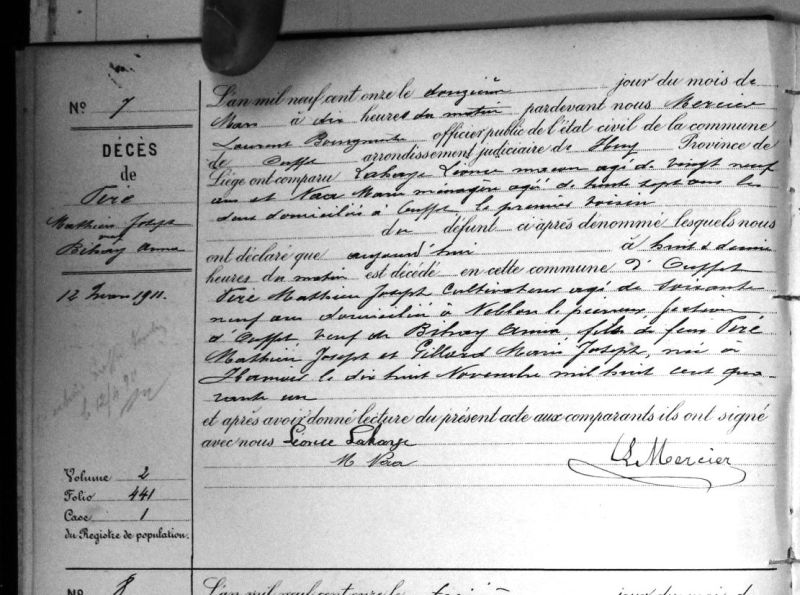 No 7
DÉCÈS
de
Piré
Mathieu Joseph
veuf
Bihay Anna
12 Mars 1911.
Volume 2
Folio 441
Case 1
du Registre de population.
L'an mil neuf cent onze le douzième jour du mois de
Mars à dix heures du matin pardevant nous Mercier
Laurent officier public de l'état civil de la commune
de Ouffet arrondissement judiciaire de Huy Province de
Liége ont comparu Lahaye Léonce maçon agé de vingt neuf
ans et Naa Marie ménagère agé de trente sept ans les
deux domiciliés à Ouffet le premier voisin
du défunt ci après dénommé lesquels nous
ont déclaré que aujourd'hui à huit & demie
heures du matin est décédé en cette commune d'Ouffet
Piré Mathieu Joseph Cultivateur agé de soixante
neuf ans domicilié à section
d'Ouffet, veuf de Bihay Anna fils de feus Piré
Mathieu Joseph et Gillard Marie Joseph, né à
Hamoir le dix huit Novembre mil huit cent qua-
rante un
et après avoir donné lecture du présent acte aux comparants ils ont signé
avec nous Léonce Lahaye
M Naa
L Mercier
No 8
L'an mil neuf cent onze le jour du mois de